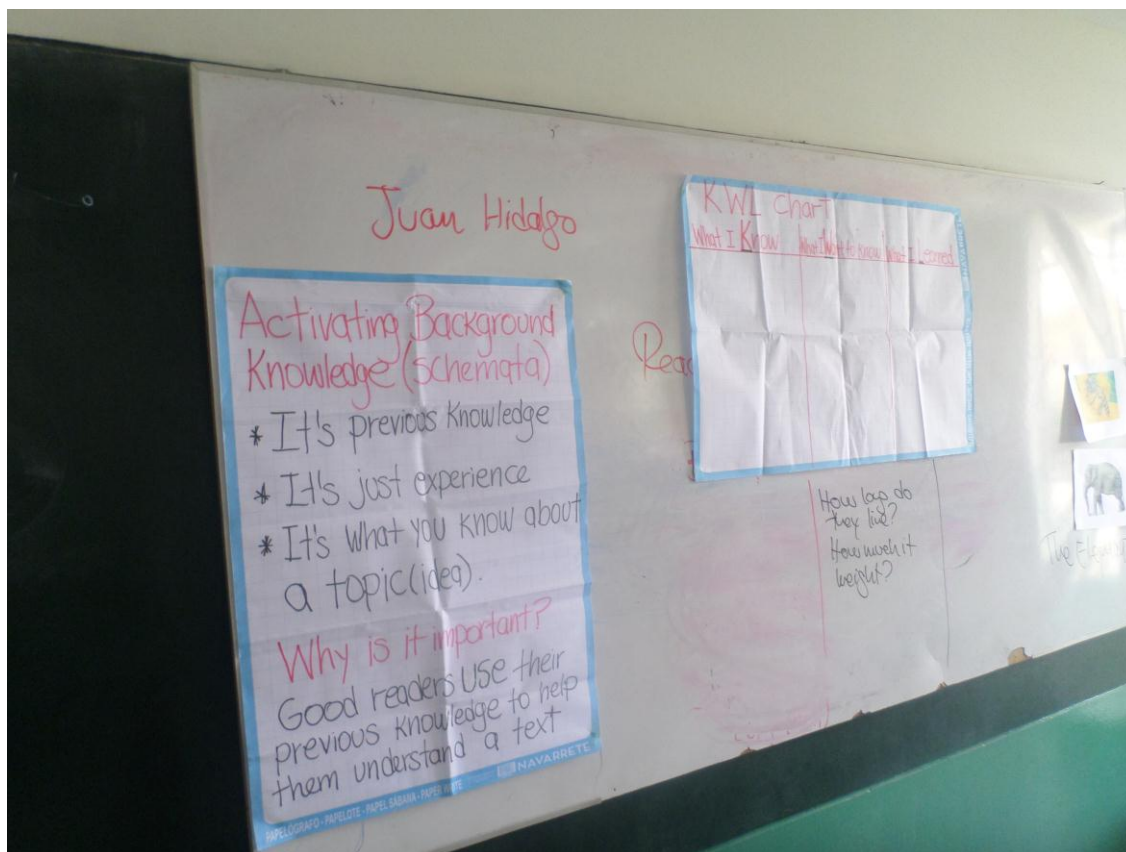 Juan Hidalgo
Activating Background
Knowledge (schemata)
* It's previous knowledge
* It's just experience
* It's what you know about
a topic (idea).
Why is it important?
Good readers use their
previous knowledge to help
them understand a text
PAPELÓGRAFO - PAPELOTE - PAPEL SÁBANA - PAPER WHITE
NAVARRETE
KWL chart
What I Know
What I Want to Know
What I Learned
NAVARRETE
Read
How long do
they live?
How much it
weight?
The